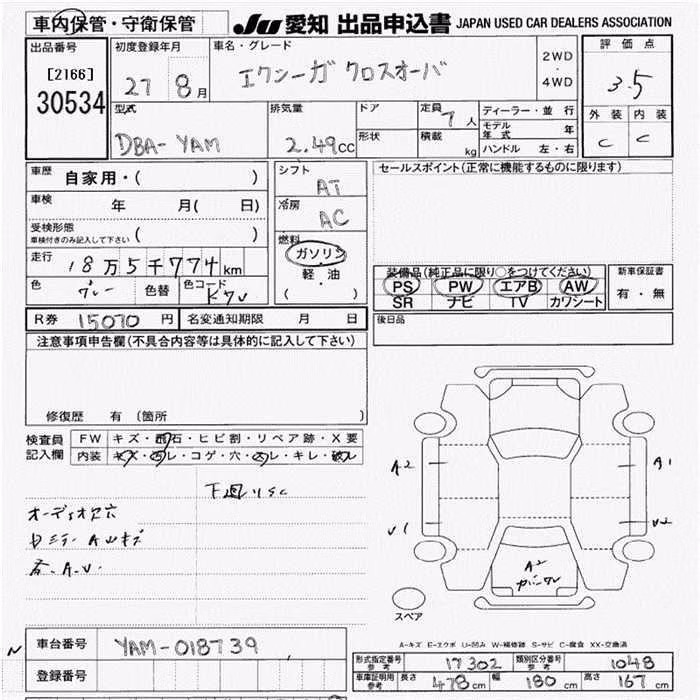 車内保管・守衛保管
JU 愛知 出品申込書 JAPAN USED CAR DEALERS ASSOCIATION
出品番号
[2166]
30534
初度登録年月
27 8月
車名・グレード
エクシーガ クロスオーバ
2WD
・
4WD
評価点
3.5
外装 内装
C C
型式
DBA-YAM
排気量
2.49cc
ドア
形状
定員 7人
積載 kg
ディーラー・並行
モデル年式 年
ハンドル 左・右
車歴 自家用・( )
車検 年 月( 日)
受検形態
車検付きのみ記入して下さい ( )
走行 18万5千774km
色 グレー 色替 色コード K7V
シフト
AT
冷房
AC
燃料
ガソリン
・
軽・油
( )
セールスポイント(正常に機能するものに限ります)
装備品(純正品に限り○をつけてください)
PS PW エアB AW
SR ナビ TV カワシート
新車保証書
有・無
後日品
R券 15070円 名変通知期限 月 日
注意事項申告欄(不具合内容等は具体的に記入して下さい)
修復歴 有 (箇所 )
検査員
記入欄
FW キズ・飛石・ヒビ割・リペア跡・X要
内装 キズ・汚レ・コゲ・穴・スレ・キレ・破レ
下廻りSC
オーディオ欠穴
各.A.U.
A2
A1
U1
U2
A2
スペア
A-キズ E-エクボ U-凹み W-補修跡 S-サビ C-腐食 XX-交換済
車台番号 YAM-018739
登録番号
型式指定番号
参考 17302
類別区分番号
参考 1048
車庫証明用
参考 長さ 478cm 幅 180cm 高さ 167cm